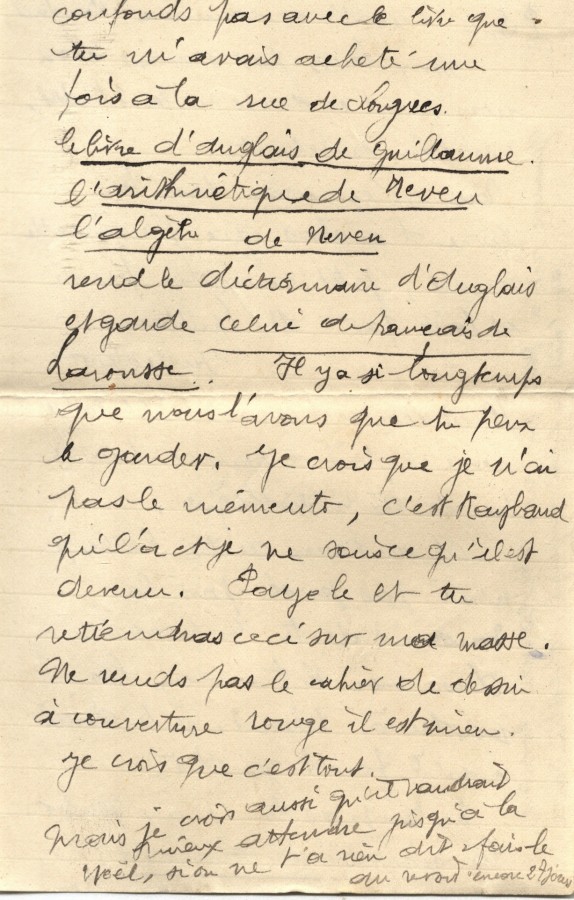 confonds pas avec le livre que
tu m'avais acheté une
fois à la rue de
le livre d'Anglais de Guillaume.
l'arithmétique de Neveu
l'algèbre de Neveu
rend le dictionnaire d'Anglais
et garde celui de français de
Larousse. Il y a si longtemps
que nous l'avons que tu peux
le garder. Je crois que je n'ai
pas le mémento, c'est Raybaud
qui l'a et je ne sais ce qu'il est
devenu. Paye le et tu
retiendras ceci sur ma masse.
Ne rends pas le cahier de dessin
à couverture rouge il est mien.
Je crois que c'est tout.
mais je crois aussi qu'il vaudrait
mieux attendre jusqu'à la
Noël, si on ne t'a rien dit fais le
au revoir encore 27 jours